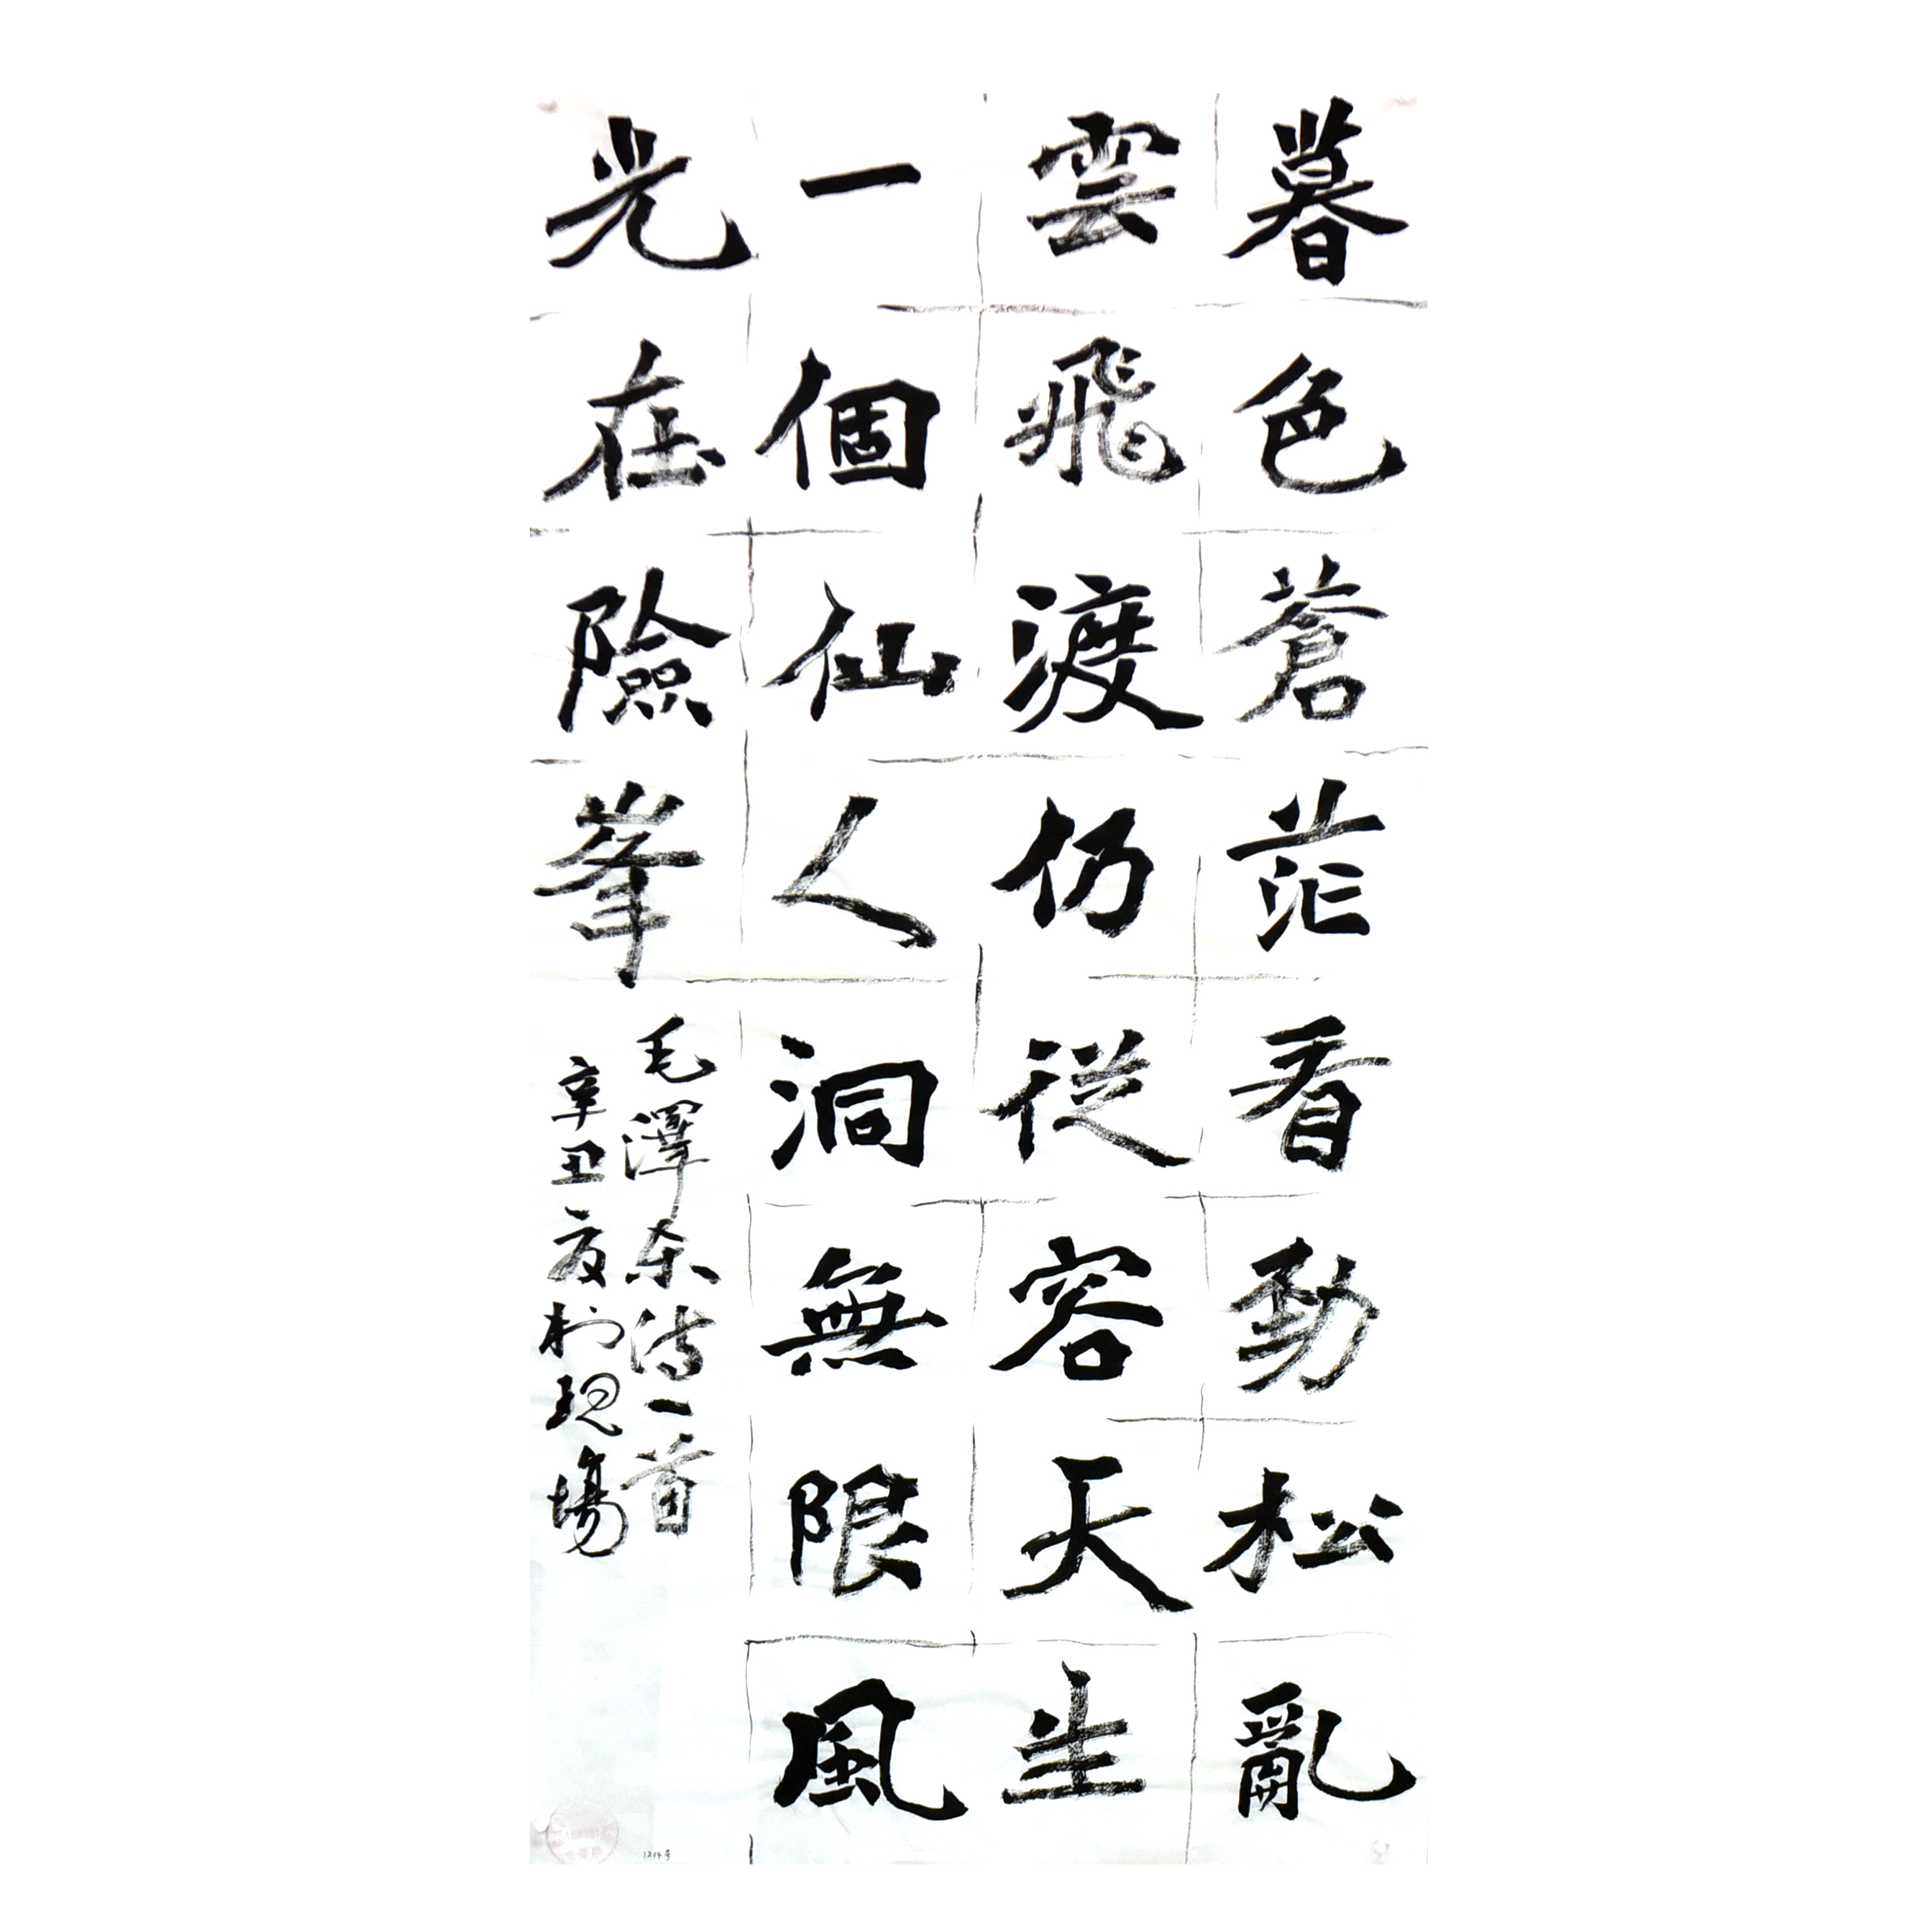 暮色蒼茫看勁松亂
雲飛渡仍從容天生
一個仙人洞無限風
光在險峯
毛澤东诗一首
辛丑夏於現場
1214号